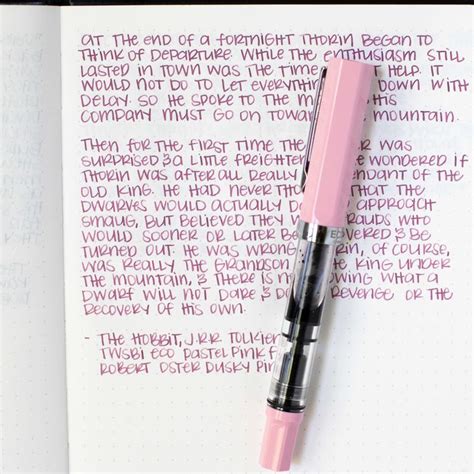 AT THE END OF A FORTNIGHT THORIN BEGAN TO
THINK OF DEPARTURE. WHILE THE ENTHUSIASM STILL
LASTED IN TOWN WAS THE TIME HELP. IT
WOULD NOT DO TO LET EVERYTHI DOWN WITH
DELAY. SO HE SPOKE TO THE M HIS
COMPANY MUST GO ON TOWA MOUNTAIN.
THEN FOR THE FIRST TIME THE ER WAS
SURPRISED & A LITTLE FREIGHTEN WONDERED IF
THORIN WAS AFTER ALL REALLY ENDANT OF THE
OLD KING. HE HAD NEVER THO THAT THE
DWARVES WOULD ACTUALLY D APPROACH
SMAUG, BUT BELIEVED THEY W RAUDS WHO
WOULD SOONER OR LATER BE VERED & BE
TURNED OUT. HE WAS WRONG RIN, OF COURSE,
WAS REALLY THE GRANDSON KING UNDER
THE MOUNTAIN, & THERE IS N OWING WHAT A
DWARF WILL NOT DARE & D REVENGE OR THE
RECOVERY OF HIS OWN.
- THE HOBBIT, J.R.R. TOLKIEN
TWSBI ECO PASTEL PINK F
ROBERT OSTER DUSKY PIN